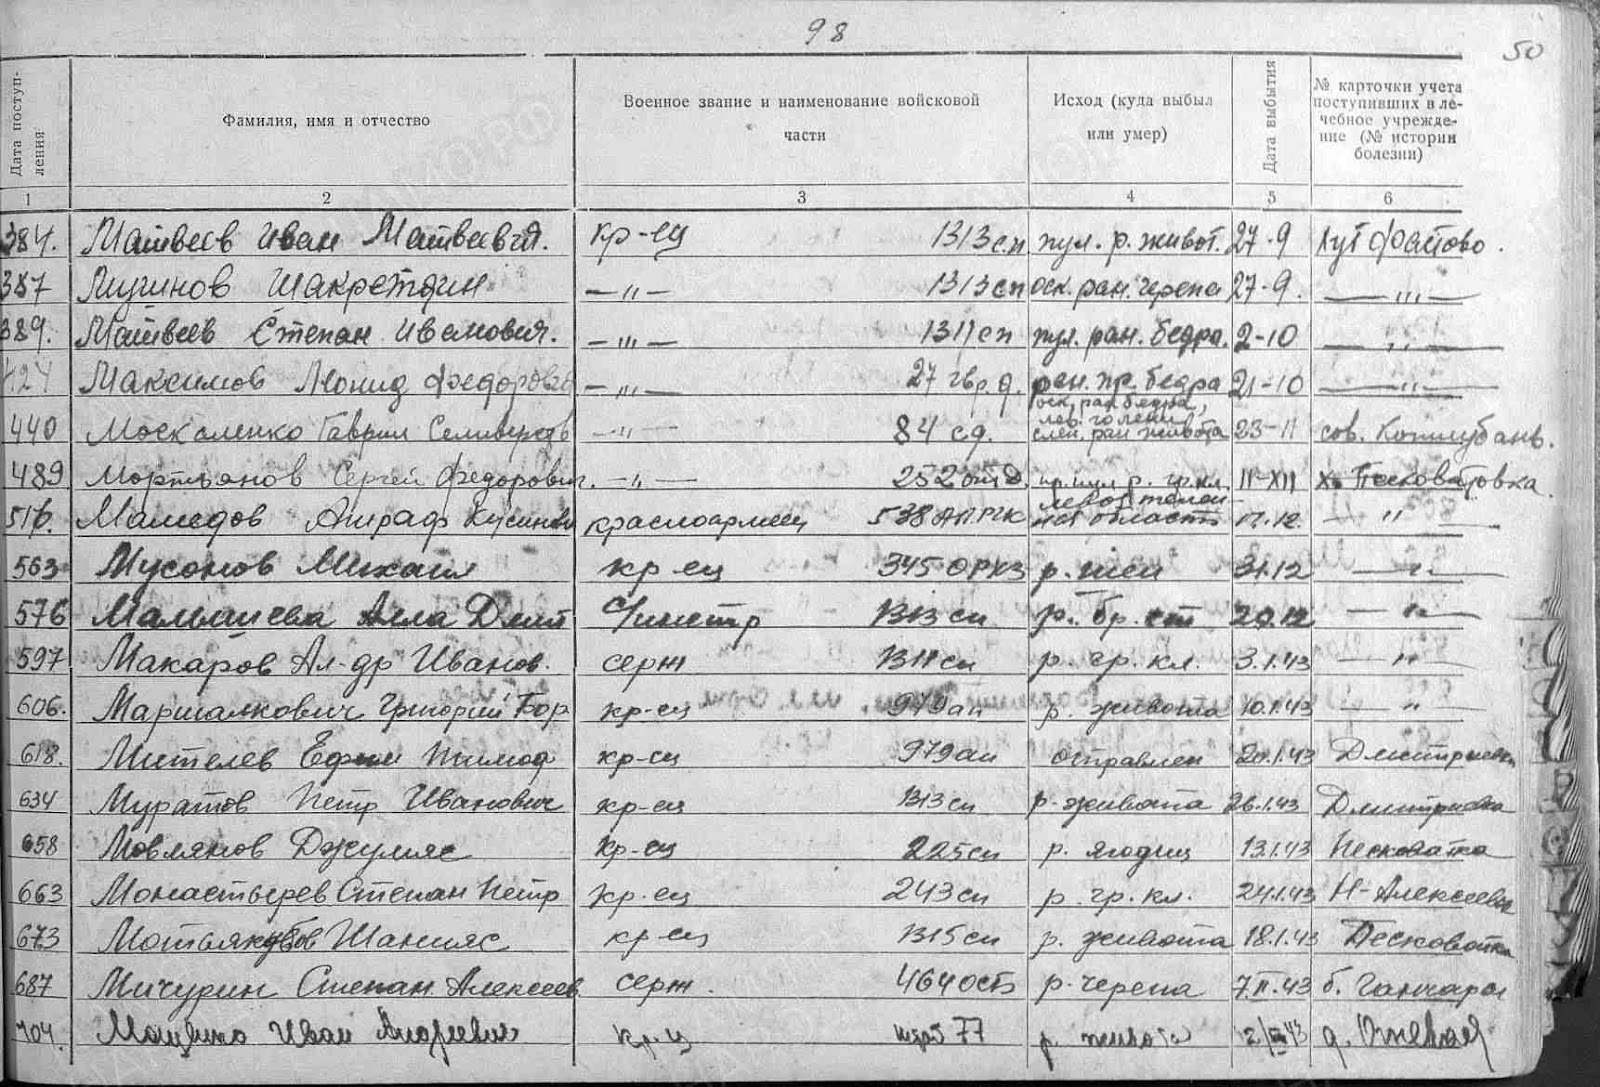 98
50
Дата поступ-
ления
Фамилия, имя и отчество
Военное звание и наименование войсковой
части
Исход (куда выбыл
или умер)
Дата выбытия
№ карточки учета
поступивших в ле-
чебное учрежде-
ние (№ истории
болезни)
1 2 3 4 5 6
384. Матвеев Иван Матвеевич. кр-ец 1313 сп. пул. р. живот. 27-9 хут Фастово.
387 Шакретдин —"— 1313 сп оск. ран. черепа 27-9. —"'—
389. Матвеев Степан Иванович. —"'— 1311 сп пул. ран. бедра. 2-10 —"—
424 Максимов Леонид Федорович —"'— 27 гвр. д. ран. пр. бедра 21-10 —"—
оск. ран бедра,
лев. голени
440 Москаленко Гаврил —"— 84 сд. слеп. ран живота 23-11 сов. Котлубань.
489 Мартьянов Сергей Федорович. —"— 252 р. гр. кл. 11-XII х. Песковатовка.
516. Мамедов красноармеец 538 область 17.12. —"—
563 Мусонов Михаил кр-ец 345 р. шеи 31.12 —"—
576 Малышева Алла Дмит 1313 сп р. бр. 20.12 —"—
597 Макаров Ал-др Иванов. серж 1311 сп р. гр. кл. 3.1.43 —"—
606. Маршалкович Григорий Бор кр-ец 979 ап р. живота 10.1.43 —"—
618. Мителев Ефим Тимоф кр-ец 979 ап отправлен 20.1.43 Дмитриевка
634 Муратов Петр Иванович кр-ец 1313 сп р. живота 26.1.43 Дмитриевка
658 Мовлянов кр-ец 225 сп р. ягодиц 13.1.43 Песковатка
663 Монастырев Степан Петр кр-ец 243 сп р. гр. кл. 24.1.43 Н-Алексеевка
673 Шанияс кр-ец 1315 сп р. живота 18.1.43 Песковатка
687 Мичурин Степан Алексеев серж. 464 ОСБ р. черепа 7.II.43 б. Ганчары
704. Иван Андреевич кр-ц 77 р. живота д.